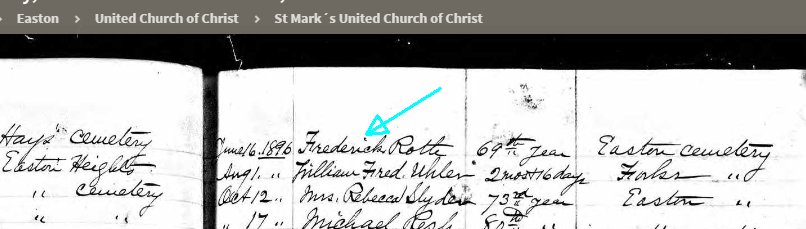 Easton > United Church of Christ > St Mark´s United Church of Christ
Hays' cemetery
Easton Heights
" cemetery
" "
June 16. 1896 Frederick Roth 69th year Easton cemetery
Aug 1. " William Fred. Uhler 2 mos + 16 days Forks "
Oct 12 " Mrs. Rebecca Slyder 73rd year Easton "
" 17 " Michael